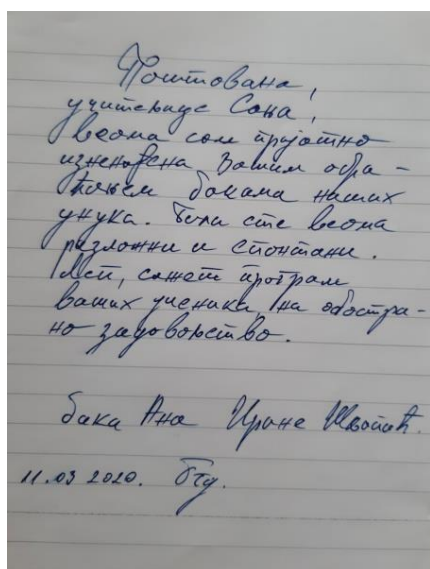 Поштована,
учитељице Сања!
Веома сам пријатно
изненађена Вашим обра-
ћањем бакама наших
унука. Били сте веома
разложни и спонтани.
Леп, сажет програм
ваших ученика, на обостра-
но задовољство.
бака Ана Иране
11.03 2020. Бгд.